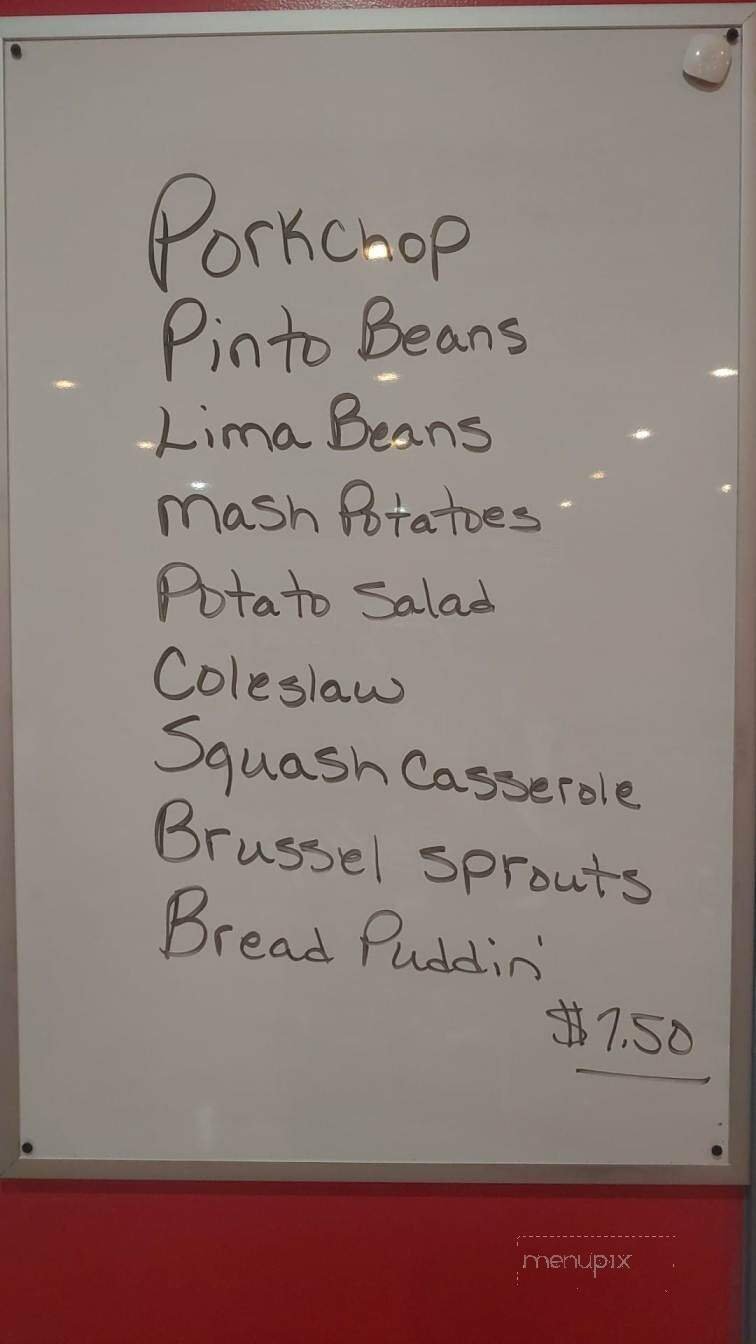 Porkchop
Pinto Beans
Lima Beans
Mash Potatoes
Potato Salad
Coleslaw
Squash Casserole
Brussel Sprouts
Bread Puddin'
$7.50
menupix